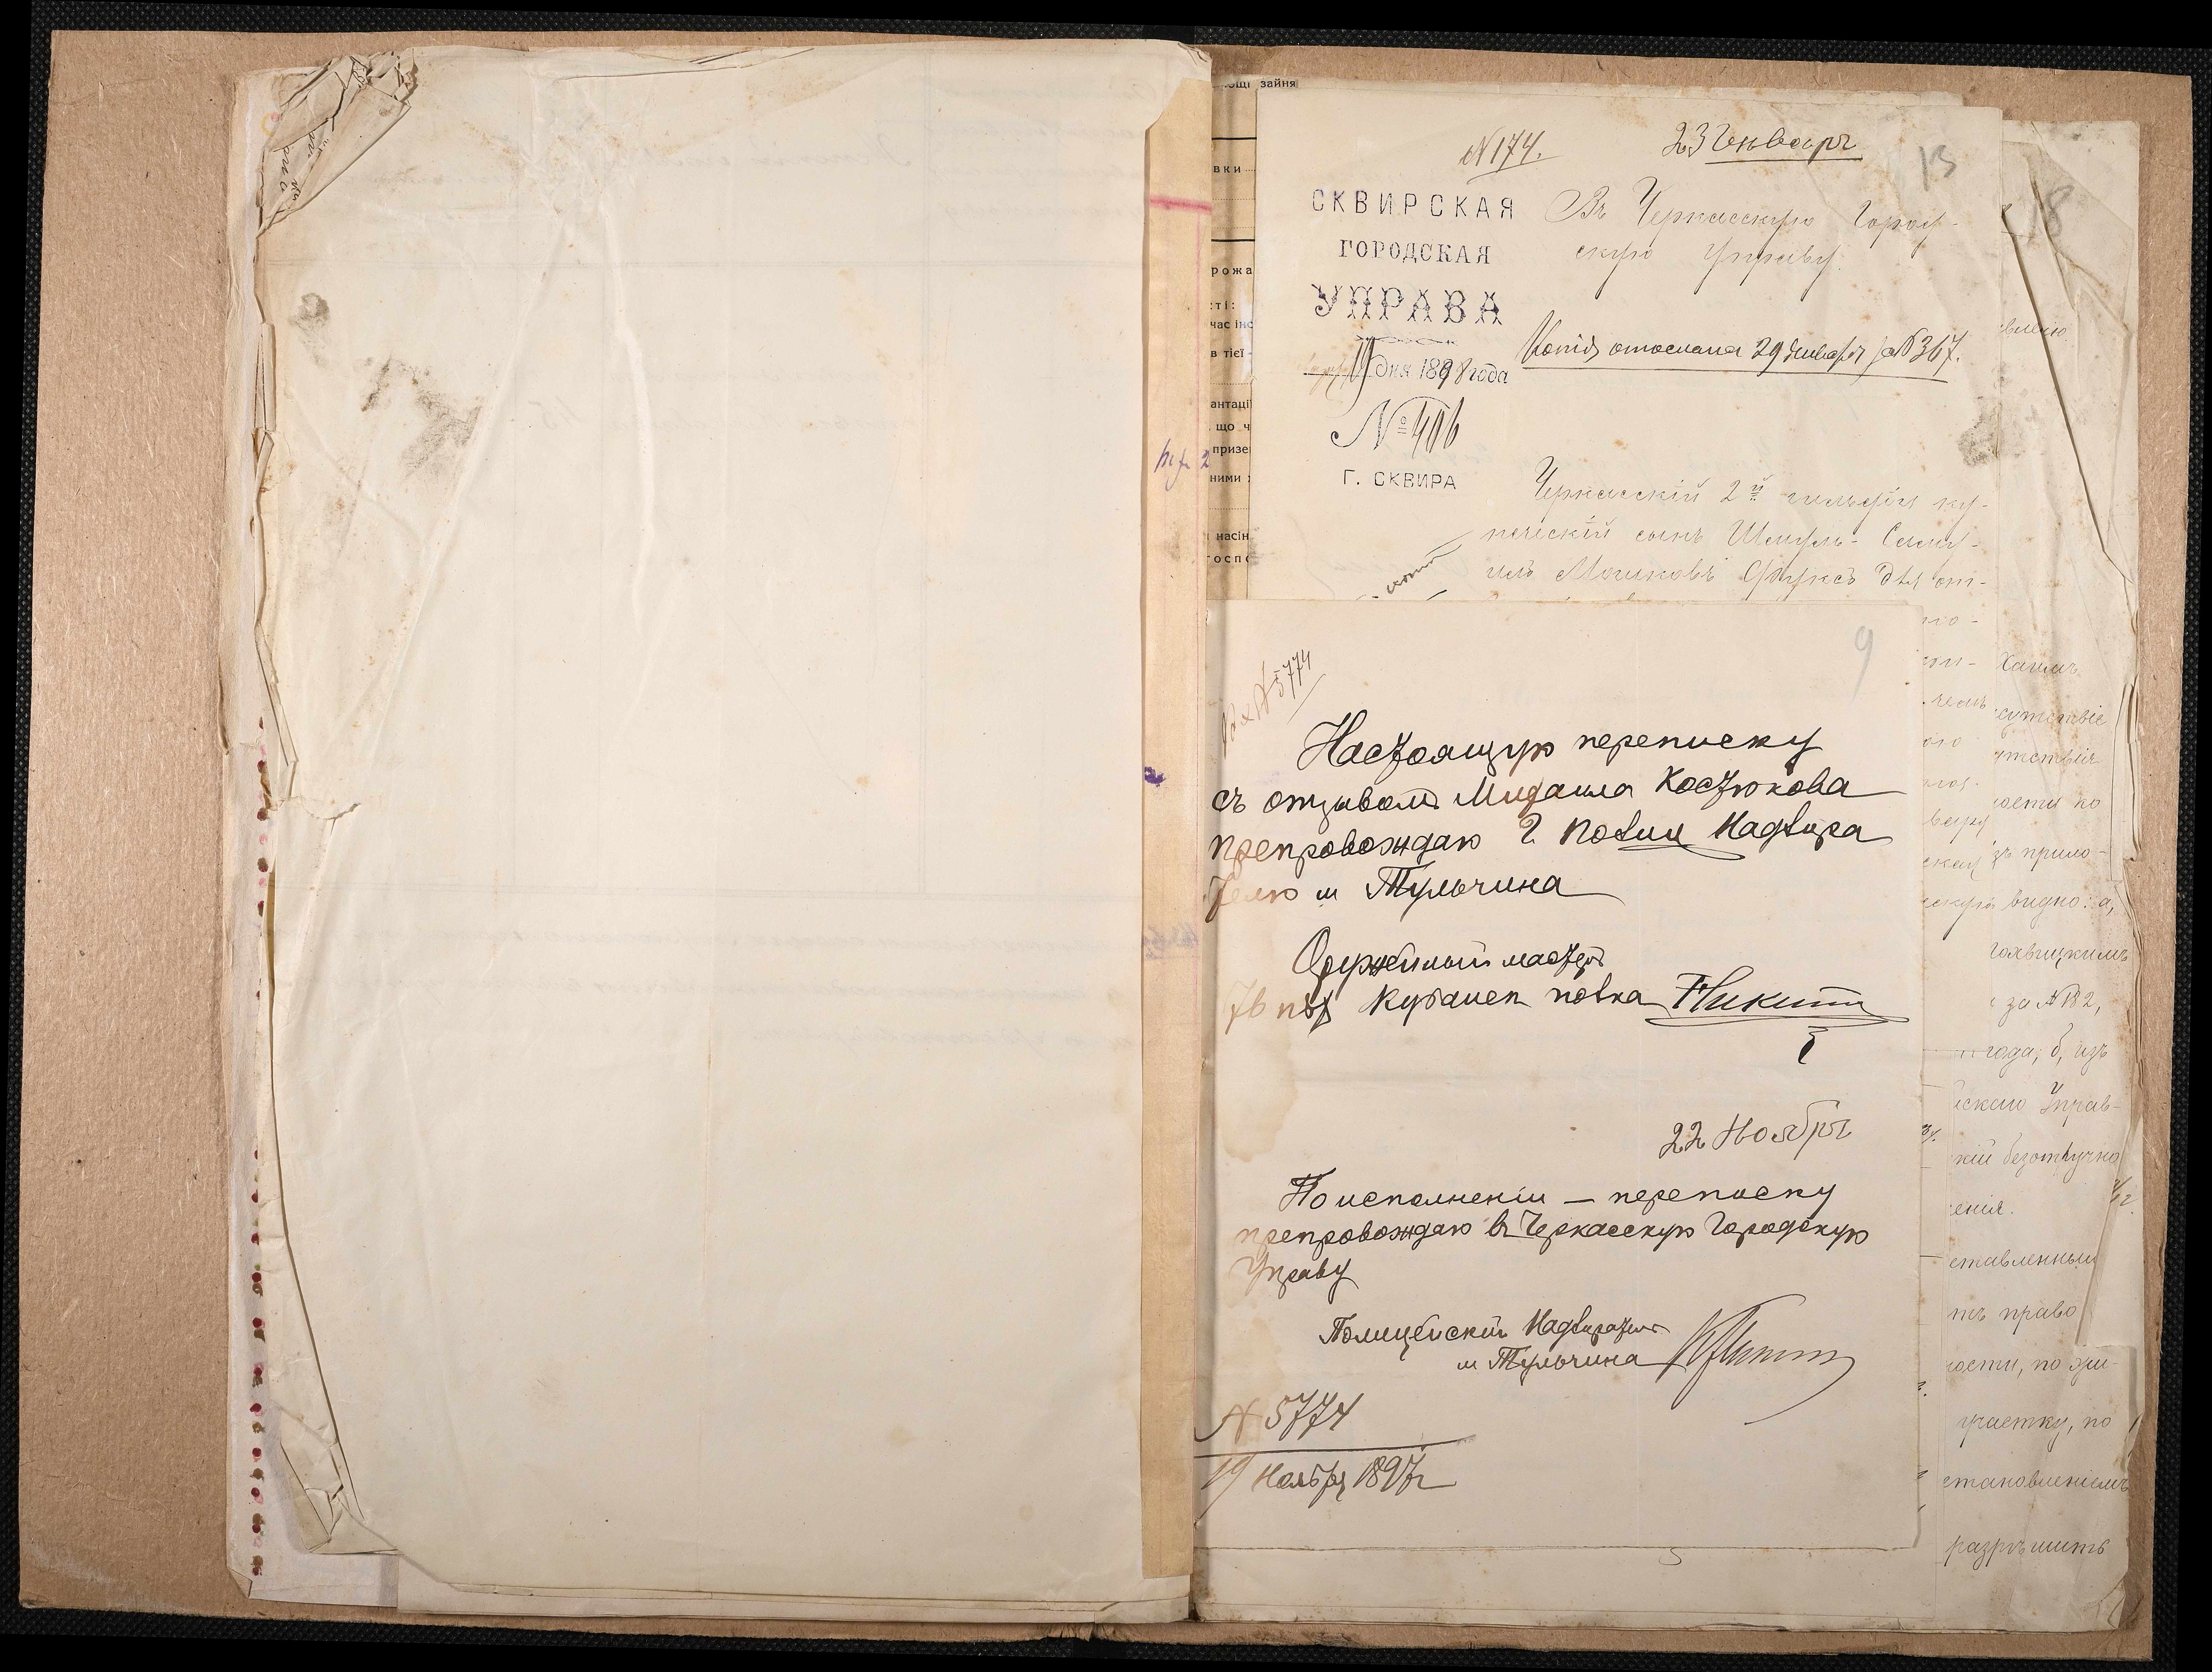 зайня
вки
рожа
ті:
час інс
в тієї
антації
що ч
призе
ними
насін
оспо
№ 174.
23 Генваря
13
СКВИРСКАЯ
ГОРОДСКАЯ
УПРАВА
19 дня 1898 года
№ 406
Г. СКВИРА
Въ Черкасскую Город-
скую Управу.
Копія отослана 29 Генваря за № 367.
Черкасскій 2й гильдіи ку-
печескій сынъ Шмуль- Саму-
илъ Мошковъ Фуксъ для от-
9
Вх № 5774
Настоящую переписку
съ отзывомъ Михаила Костюкова
препровождаю Г. Полиц Надзира
телю м Тульчина
Оружейный мастеръ
76 пѣх Кубанск полка Никит
22 Ноября
По исполненіи — переписку
препровождаю въ Черкасскую Городскую
Управу
Полицейскій Надзиратель
м Тульчина
№ 5774
19 Ноября 1897 г
18
Хаимъ
сутствіе
утствіи
ности ко
зъ прило-
видно: а,
за № 182,
года, б, изъ
скаго Управ-
кій безотлучно
енія.
ставленныи
тъ право
ности, по жи-
участку, по
становленіемъ
разрѣшить